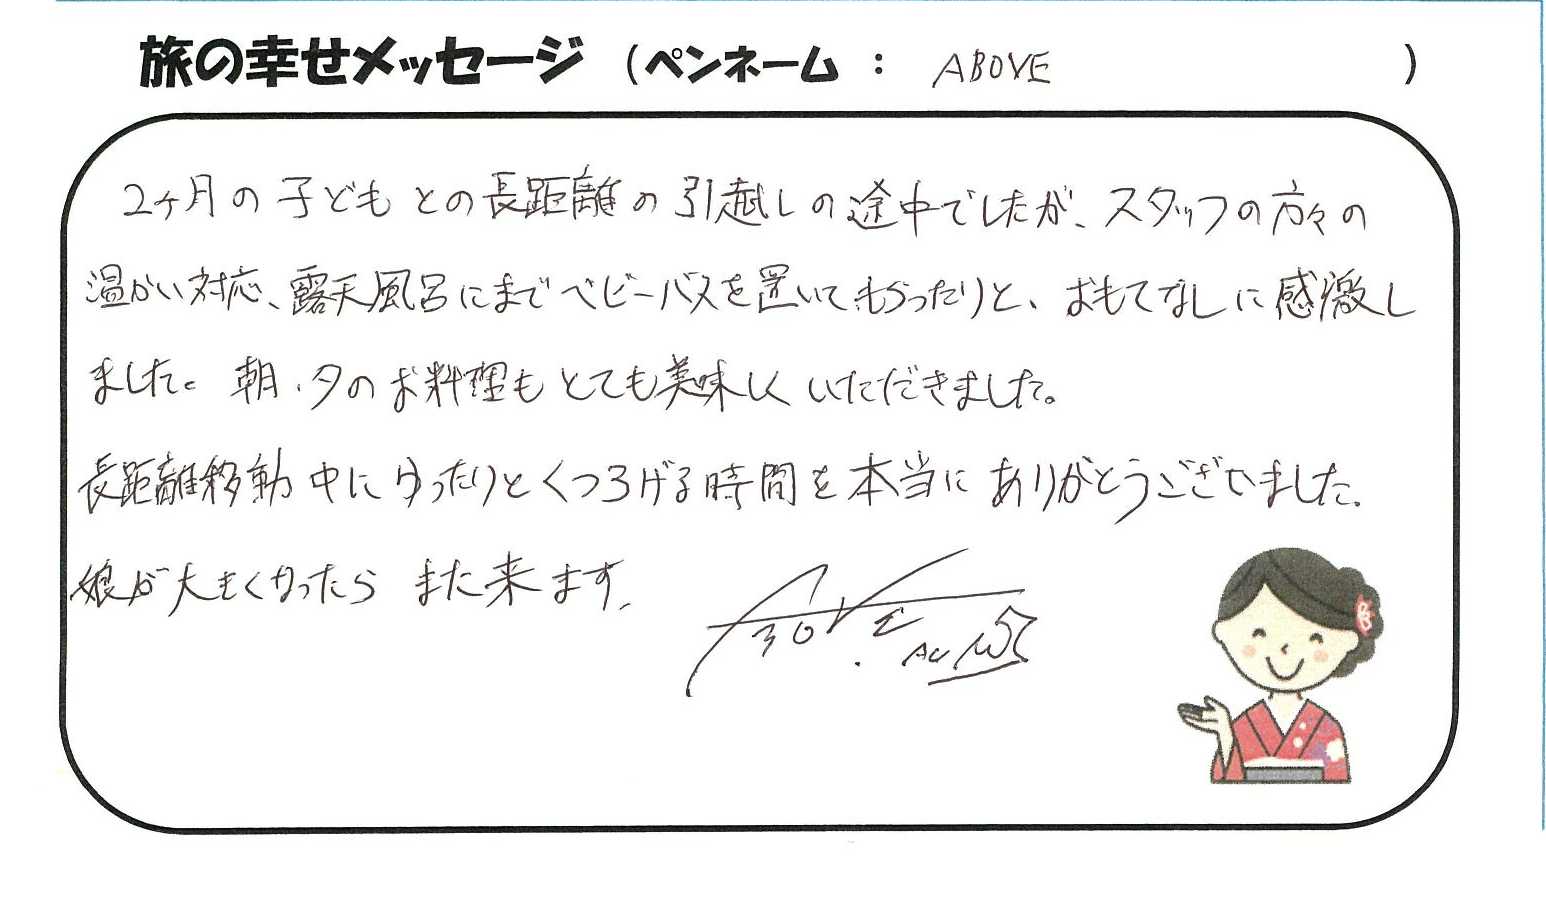 旅の幸せメッセージ （ペンネーム ： ABOVE ）
2ヶ月の子どもとの長距離の引越しの途中でしたが、スタッフの方々の
温かい対応、露天風呂にまでベビーバスを置いてもらったりと、おもてなしに感激し
ました。朝・夕のお料理もとても美味しくいただきました。
長距離移動中にゆったりとくつろげる時間を本当にありがとうございました。
娘が大きくなったらまた来ます。